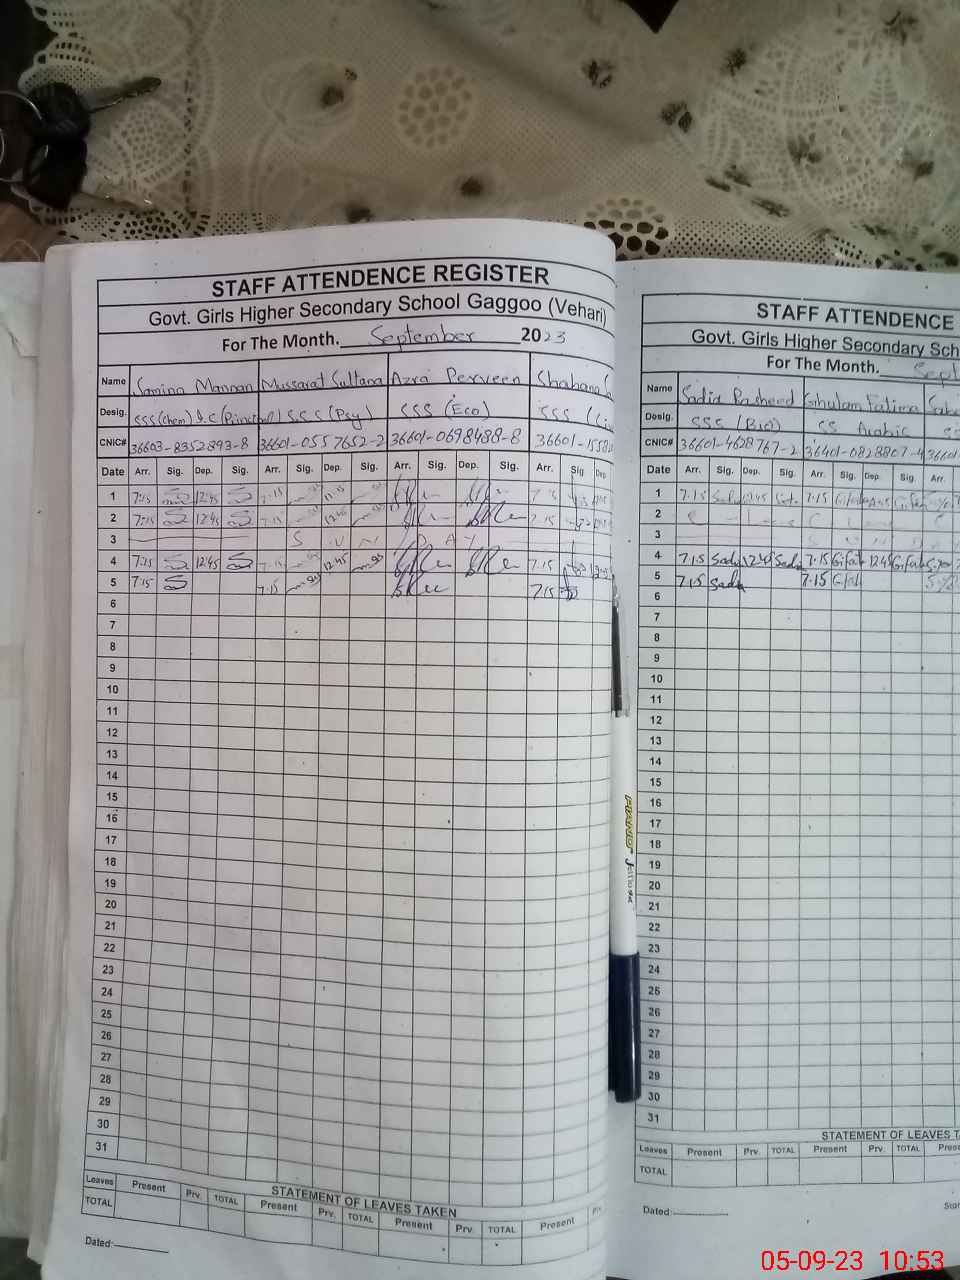 STAFF ATTENDENCE REGISTER
Govt. Girls Higher Secondary School Gaggoo (Vehari)
For The Month. September 2023
Name Samina Mannan Mussarat Sultana Azra Perveen Shahana
Desig. SSS(Chem) I.C (Principal) S.S.S (Psy) SSS (Eco) SSS
CNIC# 36603-8352893-8 36601-0557652-2 36601-0698488-8 36601-
Date Arr. Sig. Dep. Sig. Arr. Sig. Dep. Sig. Arr. Sig. Dep. Sig. Arr. Sig Dep
1 7:15 12:45 7.15
2 7:15 12:45 7.15 12:45 7.15
3 S U N D A Y
4 7:15 12:45 7.15 12:45 7.15
5 7:15 7.15 7.15
6
7
8
9
10
11
12
13
14
15
16
17
18
19
20
21
22
23
24
25
26
27
28
29
30
31
STATEMENT OF LEAVES TAKEN
Leaves Present Prv. TOTAL Present Prv. TOTAL Present Prv. TOTAL Present
TOTAL
Dated:
STAFF ATTENDENCE
Govt. Girls Higher Secondary Sch
For The Month. Sept
Name Sadia Rasheed Ghulam Fatima
Desig. SSS (Bio) SS Arabic
CNIC# 36601-4628767-2 36401-0828807-4 36601
Date Arr. Sig. Dep. Sig. Arr. Sig. Dep. Sig. Arr.
1 7.15 7.15
2
3
4 7.15 Sadia Sadia 7.15 Gifat 12.45 Gifat
5 7.15 Sadia 7.15 Gifat
6
7
8
9
10
11
12
13
14
15
16
17
18
19
20
21
22
23
24
25
26
27
28
29
30
31
STATEMENT OF LEAVES TA
Leaves Present Prv. TOTAL Present Prv. TOTAL Prese
TOTAL
Dated:
PIANO
05-09-23 10:53